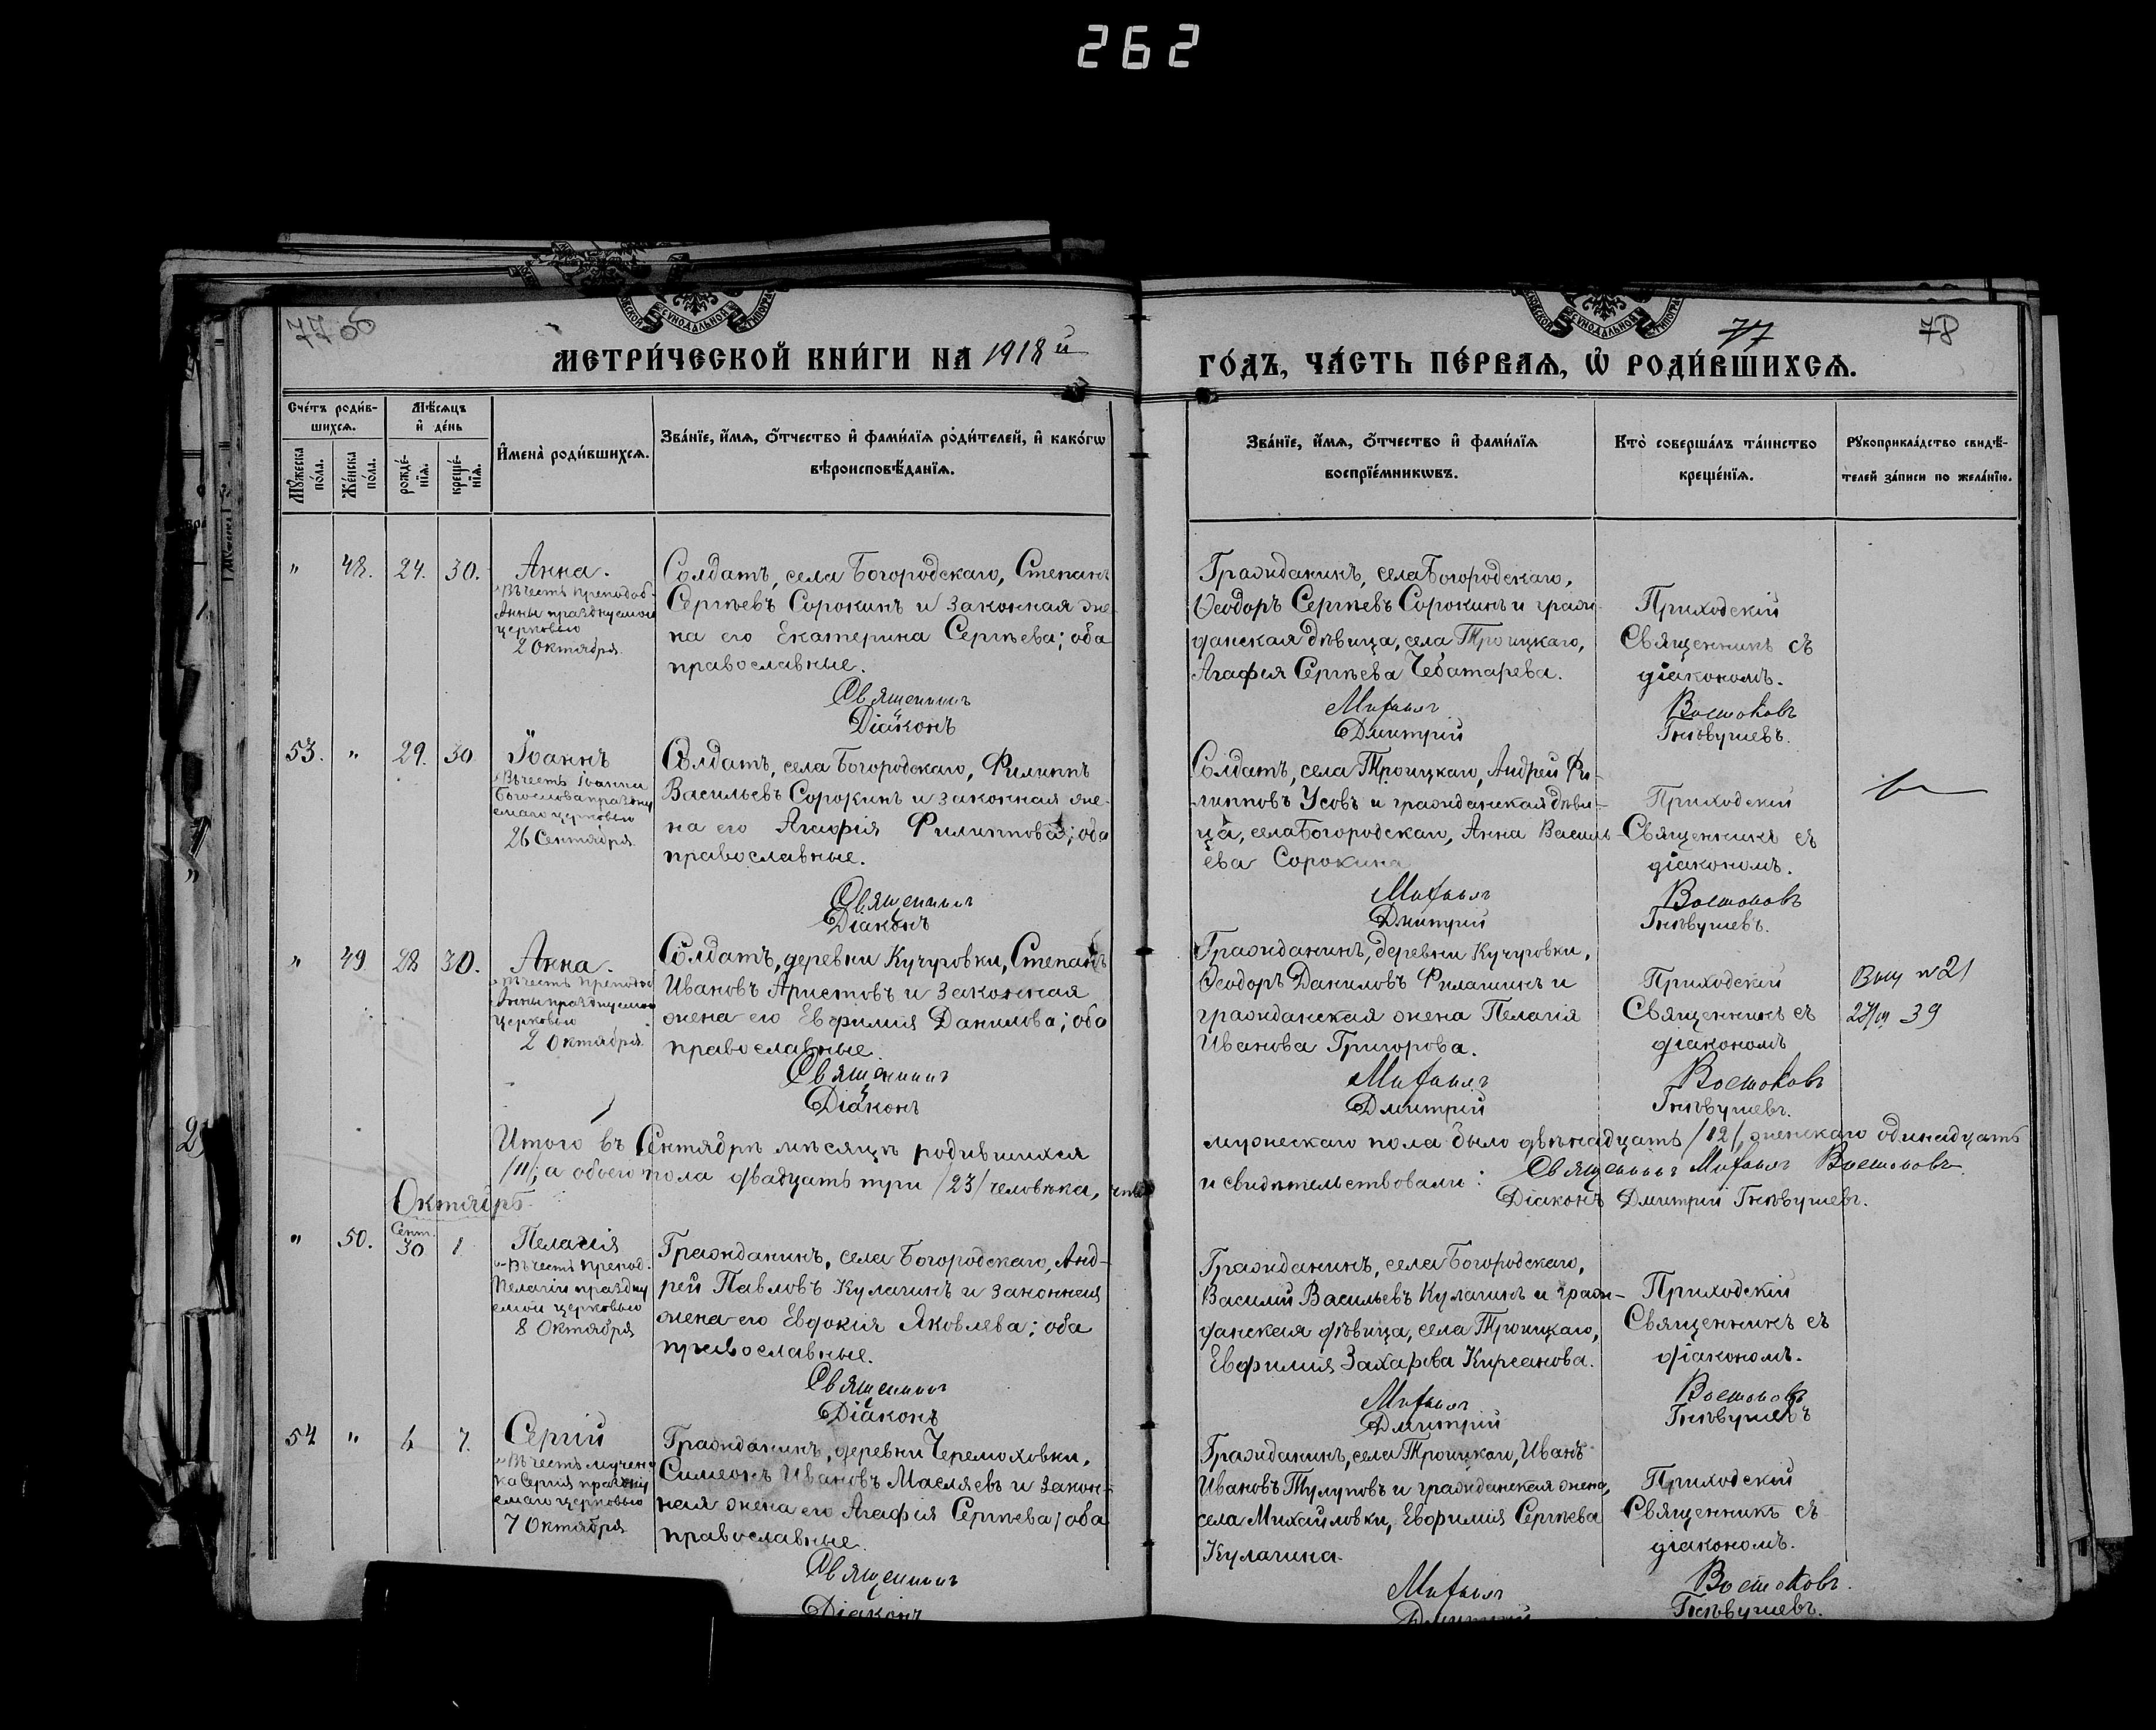 262
77 об
77
78
МЕТРИ́ЧЕСКОЙ КНИ́ГИ НА 1918 й
ГО́ДЪ, ЧА́СТЬ ПЕ́РВАѦ, Ѽ РОДИ́ВШИХСѦ.
Сче́тъ роди́в-
шихсѧ.
Мꙋ́жеска по́ла.
Же́нска по́ла.
Мѣ́сѧцъ
и҆ де́нь
рожде́-
нїѧ.
креще́-
нїѧ.
И҆мена̀ роди́вшихсѧ.
Зва́нїе, и҆́мѧ, ѻ҆́тчество и҆ фами́лїѧ роди́телей, и҆ како́гѡ
вѣроисповѣ́данїѧ.
Зва́нїе, и҆́мѧ, ѻ҆́тчество и҆ фами́лїѧ
воспрїе́мникѡвъ.
Кто̀ соверша́лъ та́инство
креще́нїѧ.
Рꙋкоприкла́дство свидѣ́-
телей за́писи по жела́нїю.
" 48. 24. 30.
Анна.
Въ честь преподоб.
Анны празднуемой
церковью
2 Октября.
Солдатъ, села Богородскаго, Степанъ
Сергѣевъ Сорокинъ и законная же-
на его Екатерина Сергѣева; оба
православные.
Священникъ
Діаконъ
Гражданинъ, села Богородскаго,
Ѳеодоръ Сергѣевъ Сорокинъ и граж-
данская дѣвица, села Троицкаго,
Агафія Сергѣева Чебатарева.
Михаилъ
Дмитрій
Приходскій
Священникъ съ
діакономъ.
Востоковъ
Гнѣвушевъ.
53. " 29. 30
Іоаннъ
Въ честь Іоанна
Богослова праздну
емаго церковью
26 Сентября.
Солдатъ, села Богородскаго, Филиппъ
Васильевъ Сорокинъ и законная же-
на его Агафія Филиппова; оба
православные.
Священникъ
Діаконъ
Солдатъ, села Троицкаго, Андрей Фи-
липповъ Усовъ и гражданская дѣви-
ца, села Богородскаго, Анна Василь-
ева Сорокина
Михаилъ
Дмитрій
Приходскій
Священникъ съ
діакономъ.
Востоковъ
Гнѣвушевъ.
" 49 28 30.
Анна.
Въ честь преподоб
Анны празднуемой
церковью
2 Октября.
Солдатъ, деревни Кучуровки, Степанъ
Ивановъ Аристовъ и законная
жена его Евфимія Данилова; оба
православные.
Священникъ
Діаконъ
Гражданинъ, деревни Кучуровки,
Ѳеодоръ Даниловъ Филашинъ и
гражданская жена Пелагія
Иванова Григорова.
Михаилъ
Дмитрій
Приходскій
Священникъ съ
діакономъ
Востоковъ
Гнѣвушевъ.
N 21
39
Итого въ Сентябрѣ мѣсяцѣ родившихся
мужескаго пола было двѣнадцать /12/, женскаго одинадцать
/11/; а обоего пола двадцать три /23/ человѣка,
и свидѣтельствовали: Священникъ Михаилъ Востоковъ
Діаконъ Дмитрій Гнѣвушевъ.
Октябрь.
" 50. Сент. 30 1
Пелагія
Въ честь препод.
Пелагіи праздну
емой церковью
8 Октября
Гражданинъ, села Богородскаго, Анд-
рей Павловъ Кулагинъ и законная
жена его Евдокія Яковлева; оба
православные.
Священникъ
Діаконъ
Гражданинъ, села Богородскаго,
Василій Васильевъ Кулагинъ и граж-
данская дѣвица, села Троицкаго,
Евфимія Захарова Кирсанова.
Михаилъ
Дмитрій
Приходскій
Священникъ съ
діакономъ.
Востоковъ
Гнѣвушевъ
54 " 4 7.
Сергій
Въ честь мучени
ка Сергія праздну
емаго церковью
7 Октября
Гражданинъ, деревни Черемоховки,
Симеонъ Ивановъ Масляевъ и закон-
ная жена его Агафія Сергѣева; оба
православные.
Священникъ
Діаконъ
Гражданинъ, села Троицкаго, Иванъ
Ивановъ Тулуповъ и гражданская жена,
села Михайловки, Евфимія Сергѣева
Кулагина.
Михаилъ
Дмитрій
Приходскій
Священникъ съ
діакономъ.
Востоковъ.
Гнѣвушевъ.